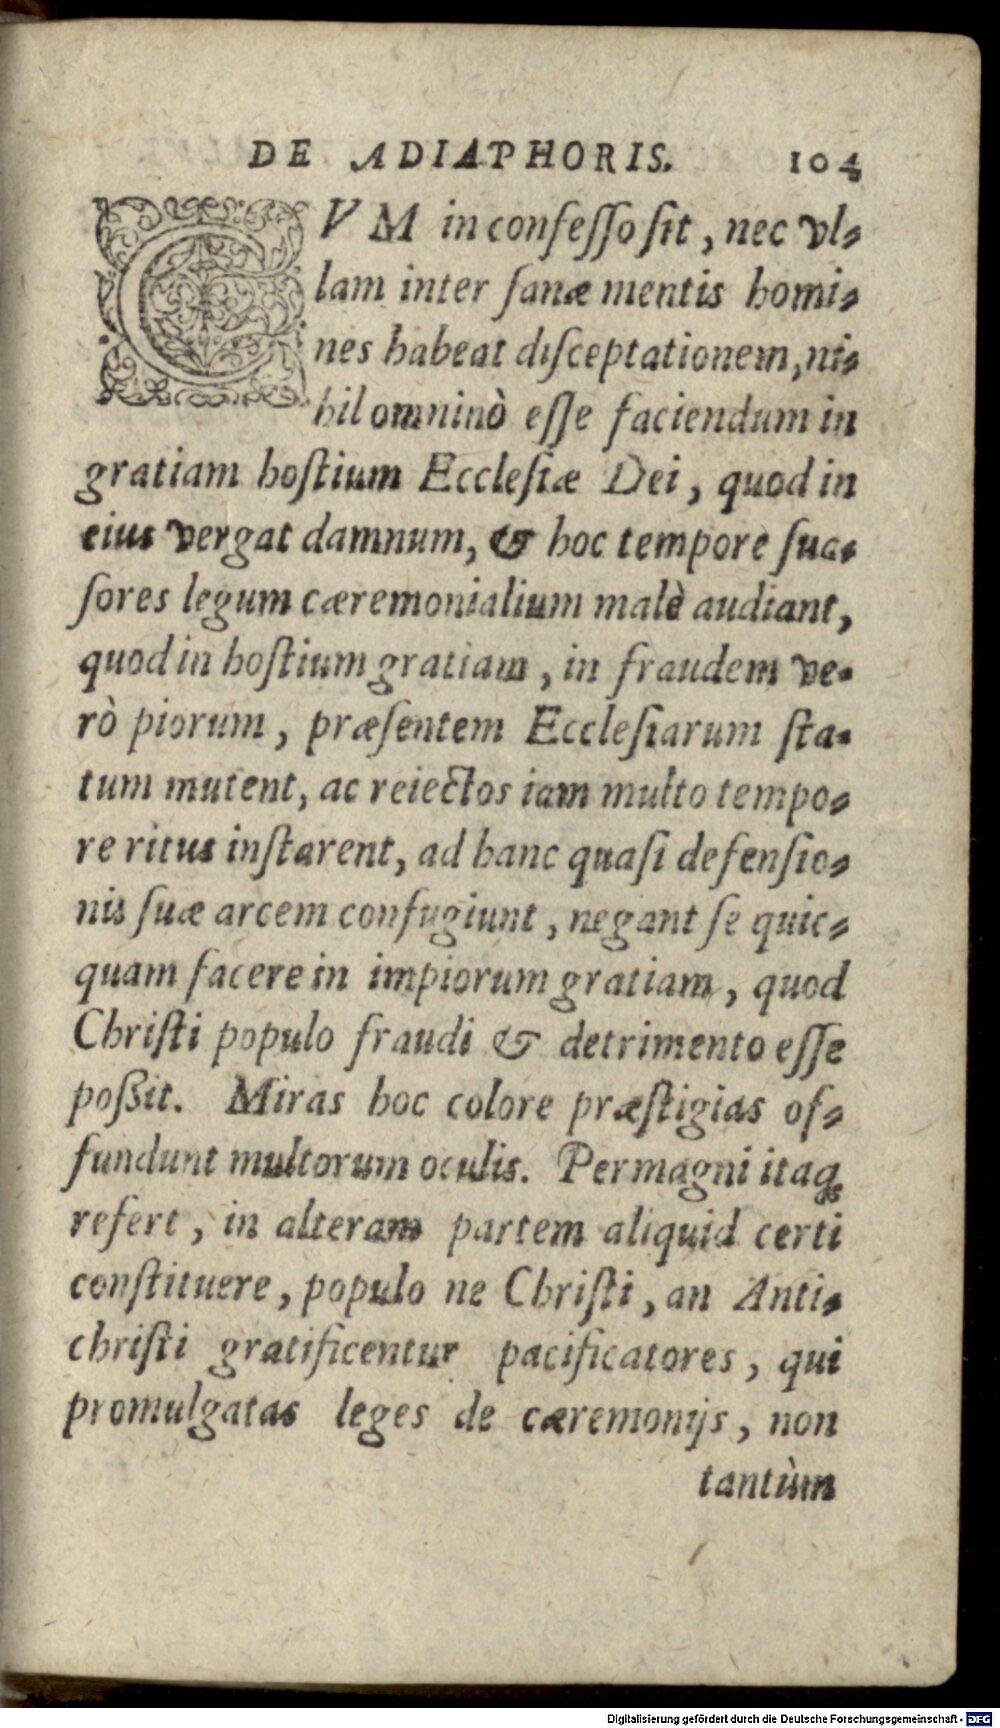 DE ADIAPHORIS. 104
CVM in confesso sit, nec vl-
lam inter sanæ mentis homi-
nes habeat disceptationem, ni-
hil omninò esse faciendum in
gratiam hostium Ecclesiæ Dei, quod in
eius vergat damnum, & hoc tempore sua-
sores legum cæremonialium malè audiant,
quod in hostium gratiam, in fraudem ve-
rò piorum, præsentem Ecclesiarum sta-
tum mutent, ac reiectos iam multo tempo-
re ritus instarent, ad hanc quasi defensio-
nis suæ arcem confugiunt, negant se quic-
quam facere in impiorum gratiam, quod
Christi populo fraudi & detrimento esse
poßit. Miras hoc colore præstigias of-
fundunt multorum oculis. Permagni itaq;
refert, in alteram partem aliquid certi
constituere, populo ne Christi, an Anti-
christi gratificentur pacificatores, qui
promulgatas leges de cæremonijs, non
tantùm
Digitalisierung gefördert durch die Deutsche Forschungsgemeinschaft - DFG